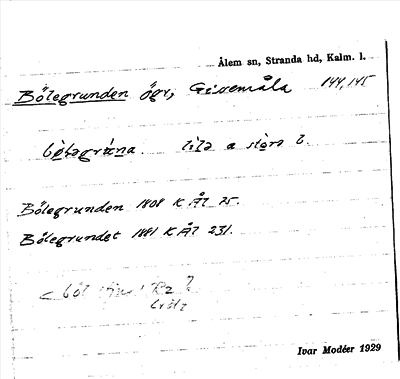 Ålem sn, Stranda hd, Kalm. l.
Bölegrunden ögr, Gissemåla 144,145
bø̀lagrùna. lila a stòra b.
Bölegrunden 1808 K ÅL 75.
Bölegrundet 1881 K ÅL 231.
< böl Rz ?
Ivar Modéer 1929